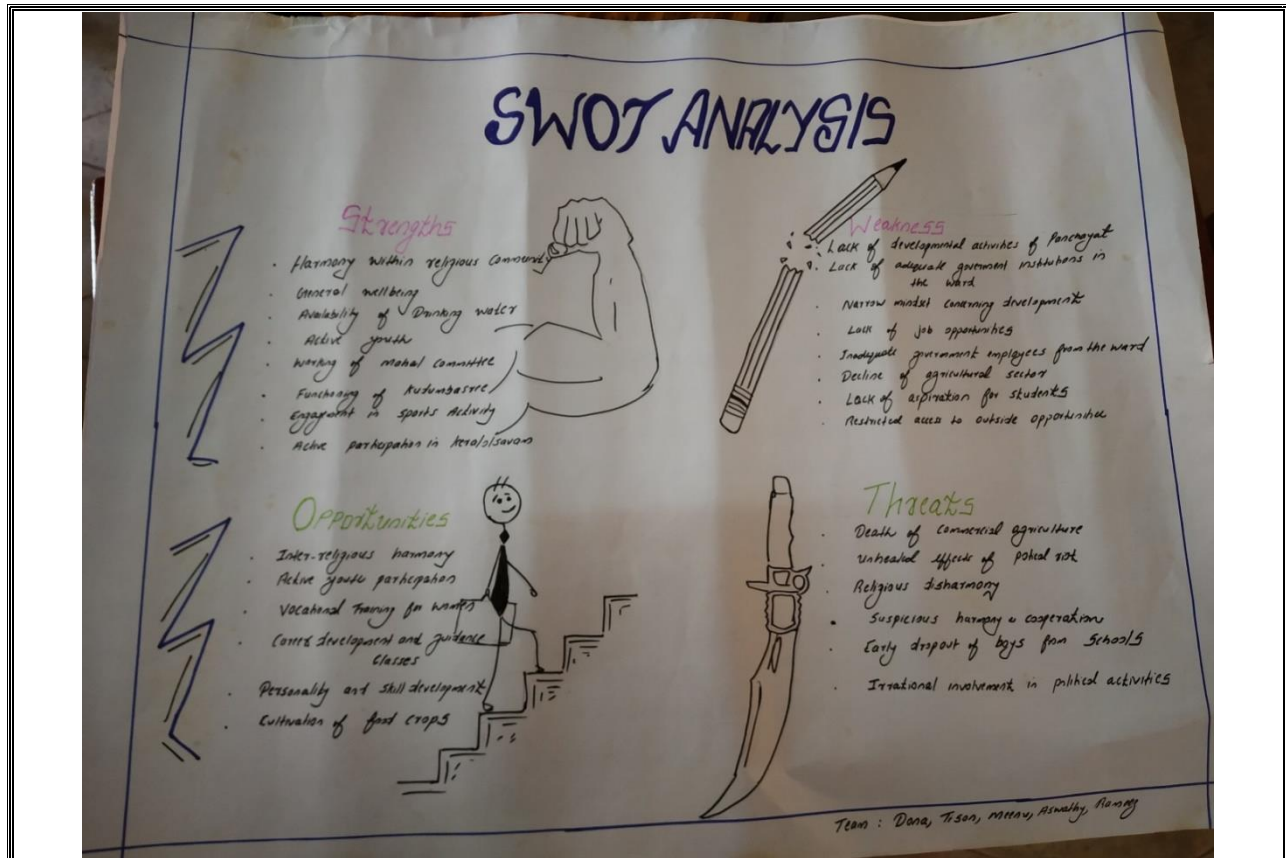 SWOT ANALYSIS
Strengths
. Harmony within religious Community
. General wellbeing
. Availability of Drinking water
. Active youth
. Working of mahal committee
. Functioning of Kudumbasree
. Engagment in sports Activity
. Active participation in keralolsavam
Weakness
. Lack of developmental activities of Panchayat
. Lack of adequate goverment institutions in
the ward
. Narrow mindset concerning development
. Lack of job opportunities
. Inadequate government employees from the ward
. Decline of agricultural sector
. Lack of aspiration for students
. Restricted access to outside opportunities
Opportunities
. Inter-religious harmony
. Active youth participation
. Vocational Training for women
. Career development and guidance
Classes
. Personality and skill development
. Cultivation of food crops
Threats
. Death of commercial agriculture
. Unhealed effects of
. Religious disharmony
. Suspicious harmony & cooperation
. Early dropout of boys from Schools
. Irrational involvement in political activities
Team : Dona, Tison, Meenu, Aswathy, Ramees